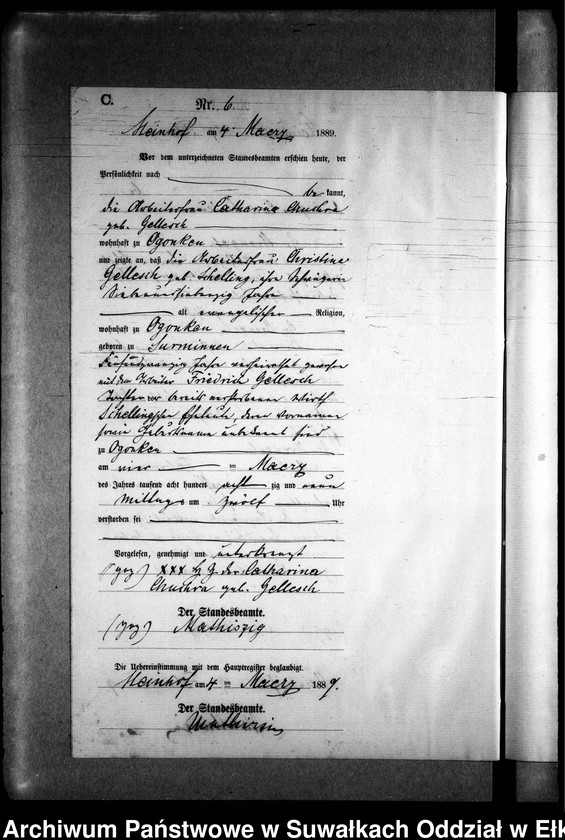 C.
Nr. 6
Steinhof am 4 Maerz 1889.
Vor dem unterzeichneten Standesbeamten erschien heute, der
Persönlichkeit nach
be kannt,
die Arbeiterfrau Catharina Chuchra
geb. Gellesch
wohnhaft zu Ogonken
und zeigte an, daß die Arbeiterfrau Christine
Gellesch geb. Schelling, ihre Schwägerin
Siebenundsiebenzig Jahre
alt evangelischer Religion,
wohnhaft zu Ogonken
geboren zu Surminnen
Fünfundzwanzig Jahre verheirathet gewesen
mit dem Arbeiter Friedrich Gellesch
Tochter der bereits verstorbenen Wirth
Schellingschen Eheleute, deren Vornamen
sowie Geburtsname unbekannt sind
zu Ogonken
am vier ten Maerz
des Jahres tausend acht hundert acht zig und neun
Mittags um zwölf Uhr
verstorben sei
Vorgelesen, genehmigt und unterkreuzt
(gez) XXX Hz der Catharina
Chuchra geb. Gellesch
Der Standesbeamte.
(gez) Mathiszig
Die Uebereinstimmung mit dem Hauptregister beglaubigt.
Steinhof am 4 ten Maerz 1889.
Der Standesbeamte.
Mathiszig
Archiwum Państwowe w Suwałkach Oddział w Ełk